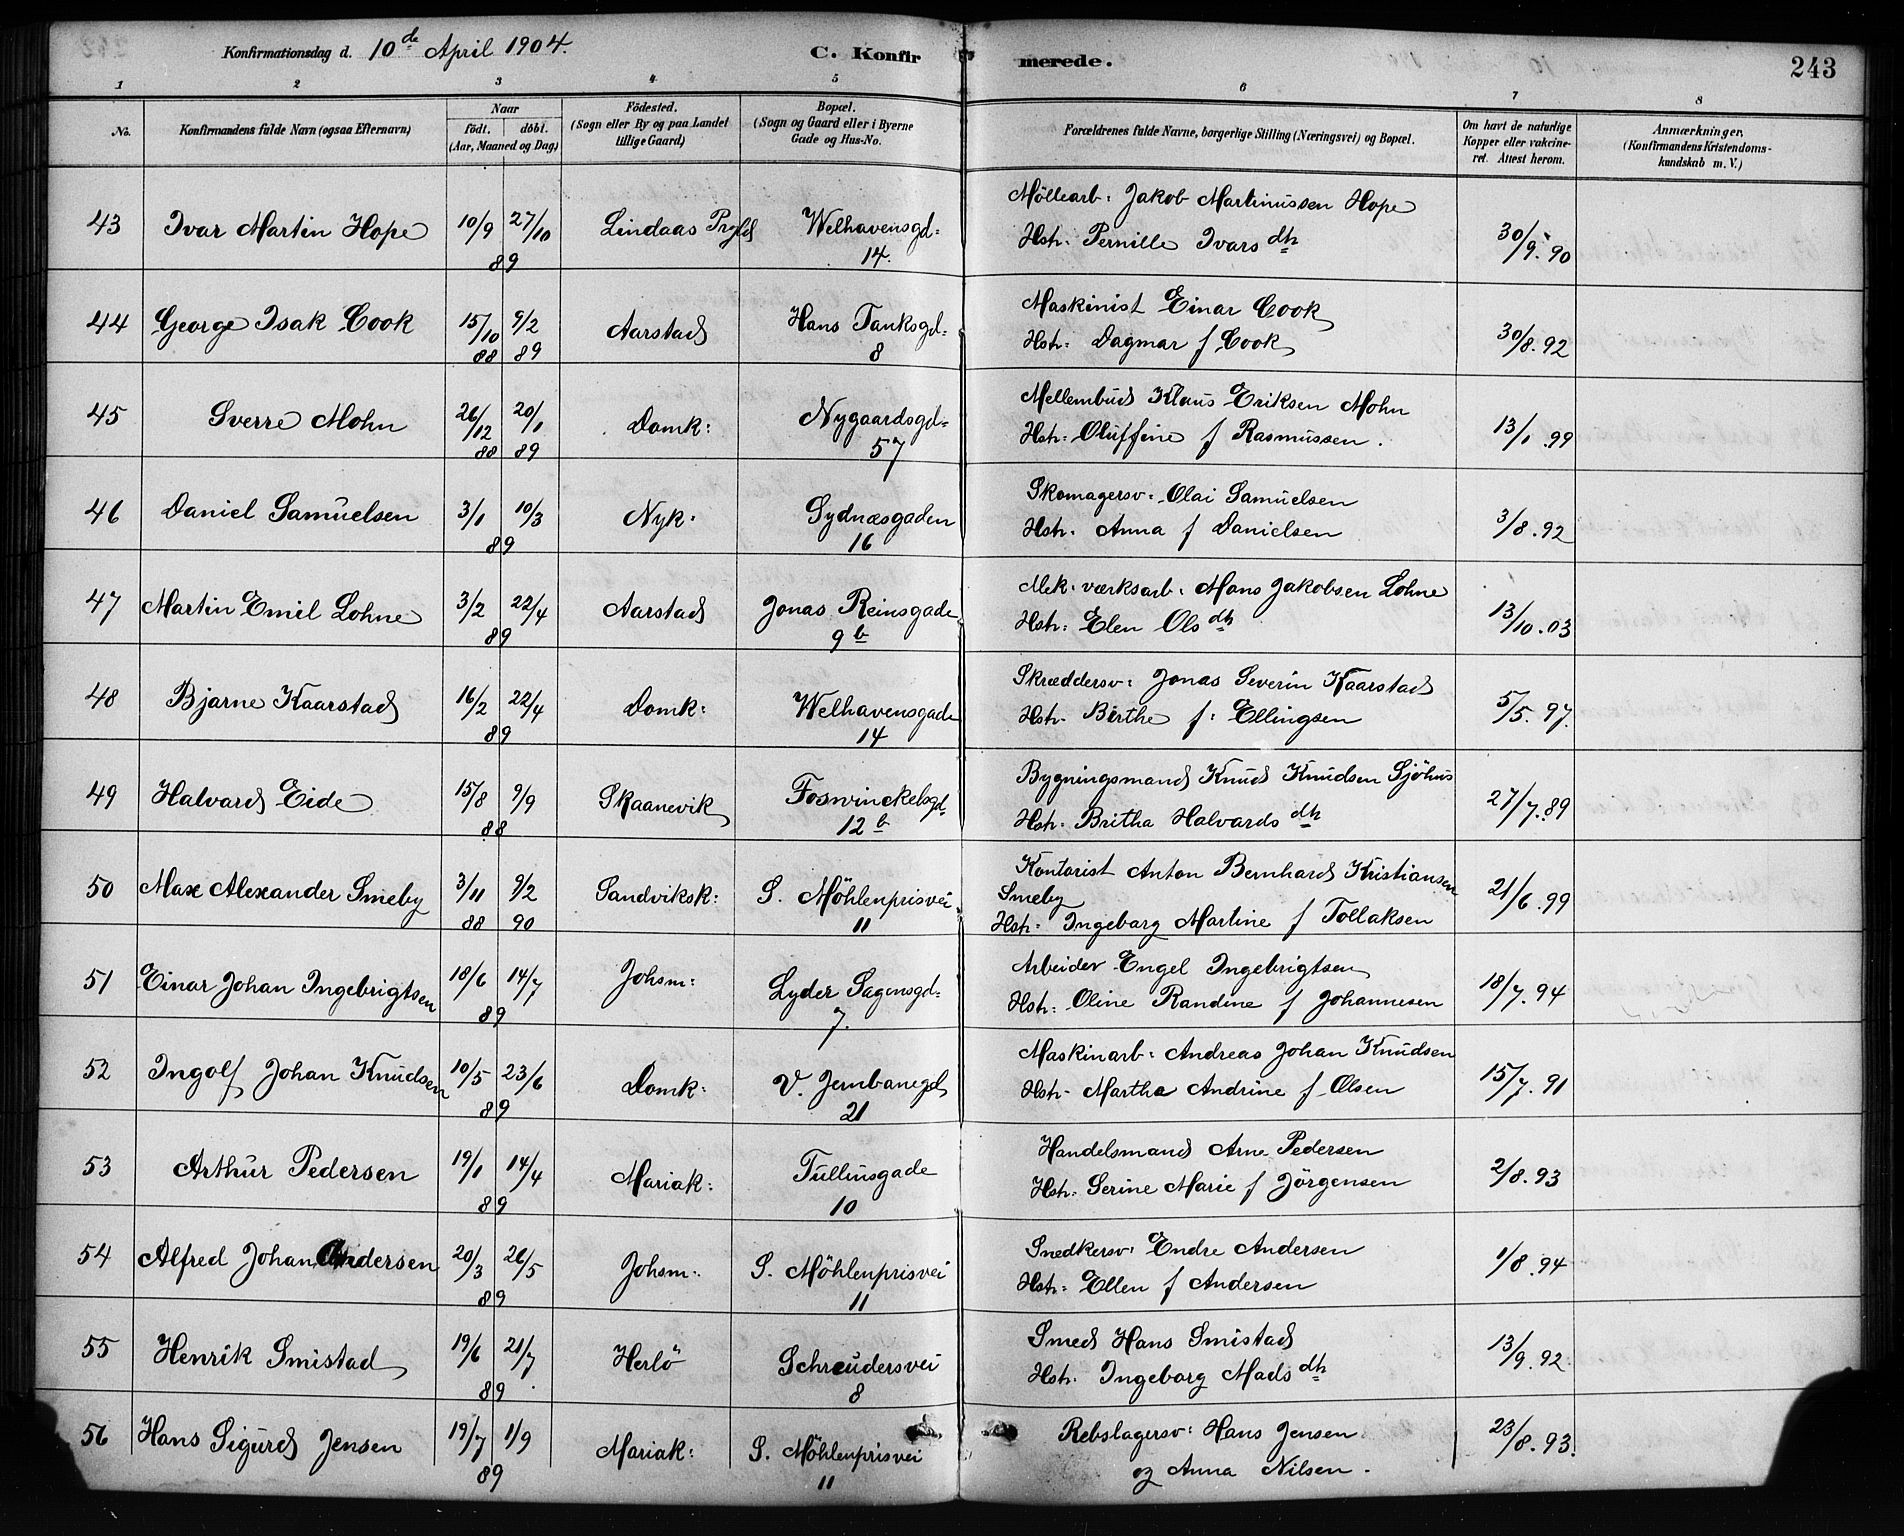 Konfirmationsdag d. 10de April 1904.
C. Konfirmerede.
243
1 2 3 4 5 6 7 8
No. Konfirmandens fulde Navn (ogsaa Efternavn) Naar født. døbt. (Aar, Maaned og Dag) Fødested. (Sogn eller By og paa Landet tillige Gaard) Bopæl. (Sogn og Gaard eller i Byerne Gade og Hus-No. Forældrenes fulde Navne, borgerlige Stilling (Næringsvei) og Bopæl. Om havt de naturlige Kopper eller vakcineret. Attest herom. Anmærkninger, (Konfirmandens Kristendomskundskab m. V.)
43 Ivar Martin Hope 10/9 27/10 89 Lindaas Prgld Welhavensgd: 14. Møllearb: Jakob Martinussen Hope
Hstr. Pernille Ivarsdtr 30/9.90
44 George Isak Cook 15/10 88 9/2 89 Aarstad Hans Tanksgd: 8 Maskinist Einar Cook
Hstr: Dagmar f Cook 30/8.92
45 Sverre Mohn 26/12 88 20/1 89 Domk: Nygaardsgd: 57 Mellembud Klaus Eriksen Mohn
Hstr: Oluffine f Rasmussen. 13/1.99
46 Daniel Samuelsen 3/1 10/3 89 Nyk: Sydnæsgaden 16 Skomagersv: Olai Samuelsen
Hstr. Anna f Danielsen 3/8.92
47 Martin Emil Lohne 3/2 22/4 89 Aarstad Jonas Reinsgade 9b Mek: værksarb: Mons Jakobsen Lohne
Hstr: Elen Olsdtr 13/10.03
48 Bjarne Kaarstad 16/2 22/4 89 Domk: Welhavensgade 14 Skræddersv: Jonas Severin Kaarstad
Hstr. Birthe f: Ellingsen 5/5.97.
49 Halvard Eide 15/8 9/9 88 Skaanevik Foswinckelsgd 12b Bygningsmand Knud Knudsen Sjöhus
Hstr. Britha Halvardsdtr 27/7.89
50 Max Alexander Smeby 3/11 88 9/2 90 Sandviksk: S. Möhlenprisvei 11 Kontorist Anton Bernhard Kristiansen
Smeby
Hstr: Ingeborg Martine f Tollaksen 21/6.99
51 Einar Johan Ingebrigtsen 18/6 14/7 89 Johsm: Lyder Sagensgd: 7. Arbeider Engel Ingebrigtsen
Hstr: Oline Randine f Johannesen 18/7.94
52 Ingolf Johan Knudsen 10/5 23/6 89 Domk: V. Jernbanegd 21 Maskinarb: Andreas Johan Knudsen
Hstr. Martha Andrine f. Olsen 15/7.91
53 Arthur Pedersen 19/1 14/4 89 Mariak: Tullinsgade 10 Handelsmand Arne Pedersen
Hstr. Serine Marie f Jörgensen 2/8.93
54 Alfred Johan Andersen 20/3 26/5 89 Johsm: S. Möhlenprisvei 11 Snedkersv: Endre Andersen
Hstr: Ellen f Andersen 1/8.94
55 Henrik Smistad 19/6 21/7 89 Herlö Schreudersvei 8 Smed Hans Smistad
Hstr. Ingeborg Madsdtr 13/9.92.
56 Hans Sigurd Jensen 19/7 1/9 89 Mariak: S. Möhlenprisvei 11 Rebslagersv: Hans Jensen
og Anna Nilsen. 23/8.93.